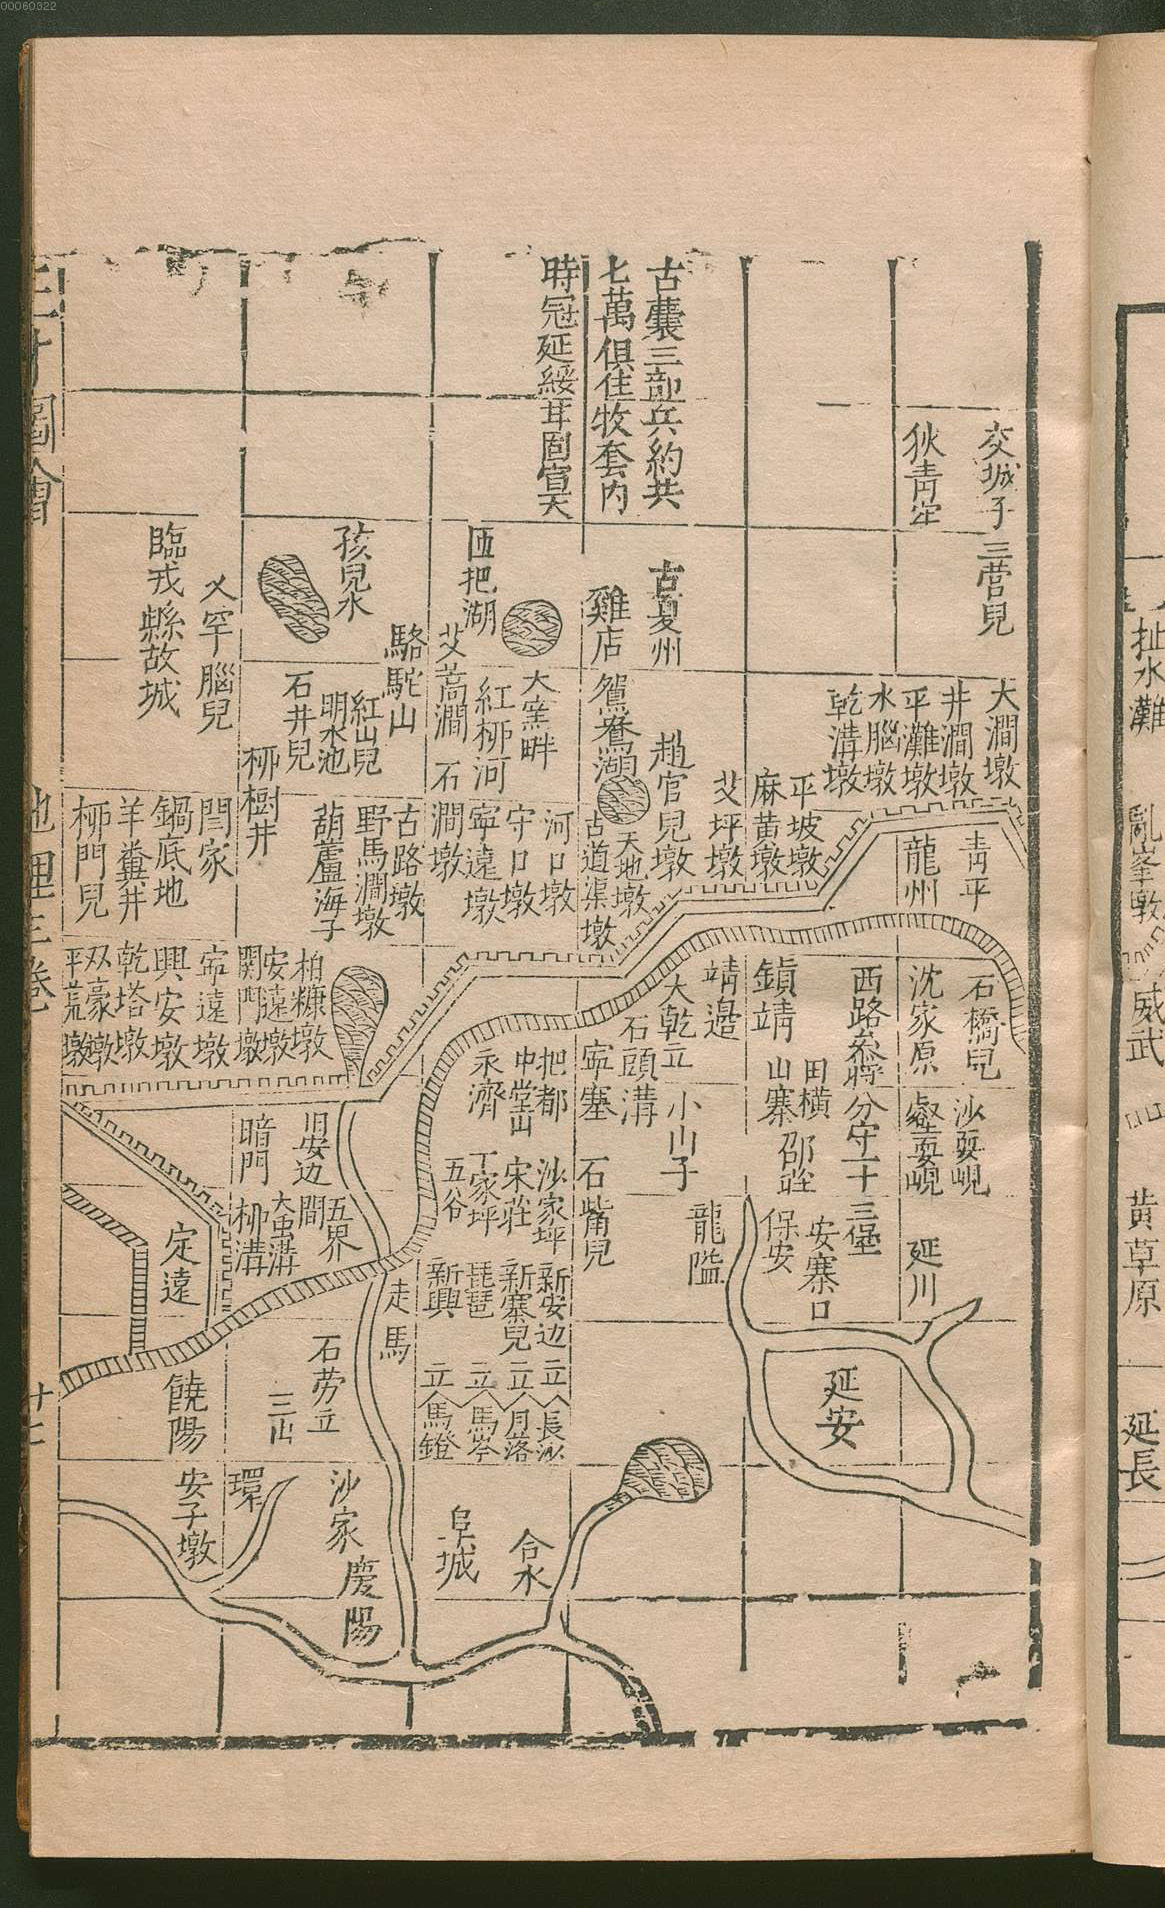 00060322
古囊三部兵約共
七萬俱住牧套內
時冠延綏甘固宣大
交城子
三营兒
狄青牢
古夏州
雞店
鴛鴦湖
匝把湖
孩兒水
駱駝山
臨戎縣故城
乂罕腦兒
大澗墩
井澗墩
平灘墩
水腦墩
乾溝墩
平坡墩
麻黄墩
艾坪墩
趙官兒墩
天地墩
古道渠墩
大窯畔
紅柳河
艾蒿澗
石澗墩
河口墩
守口墩
寧遠墩
紅山兒
明水池
石井兒
柳樹井
古路墩
野馬澗墩
葫蘆海子
閆家
鍋底地
羊糞井
柳門兒
柏糠墩
安遠墩
関門墩
寧遠墩
興安墩
乾塔墩
双豪墩
平荒墩
青平
龍州
石橋兒
沈家原
西路叅將分守二十三堡
鎮靖
靖邉
大乾立
石頭溝
寧塞
沙㽳峴
田横
山寨
邵莊
小山子
龍隘
安寨口
保安
延川
延安
石觜兒
把都
中堂山
永濟
沙家坪
宋莊
丁家坪
五谷
新安边
新寨兒
琵琶
新興
長沙
月落
馬岺
馬鐙
旧安边
暗門
五界
間
大虫溝
柳溝
定遠
走馬
石劳立
三山
饒陽
環
安子墩
沙家
慶陽
阜城
合水
三才圖會
地理三卷
扯水灘
亂峯墩
威武
黄草原
延長